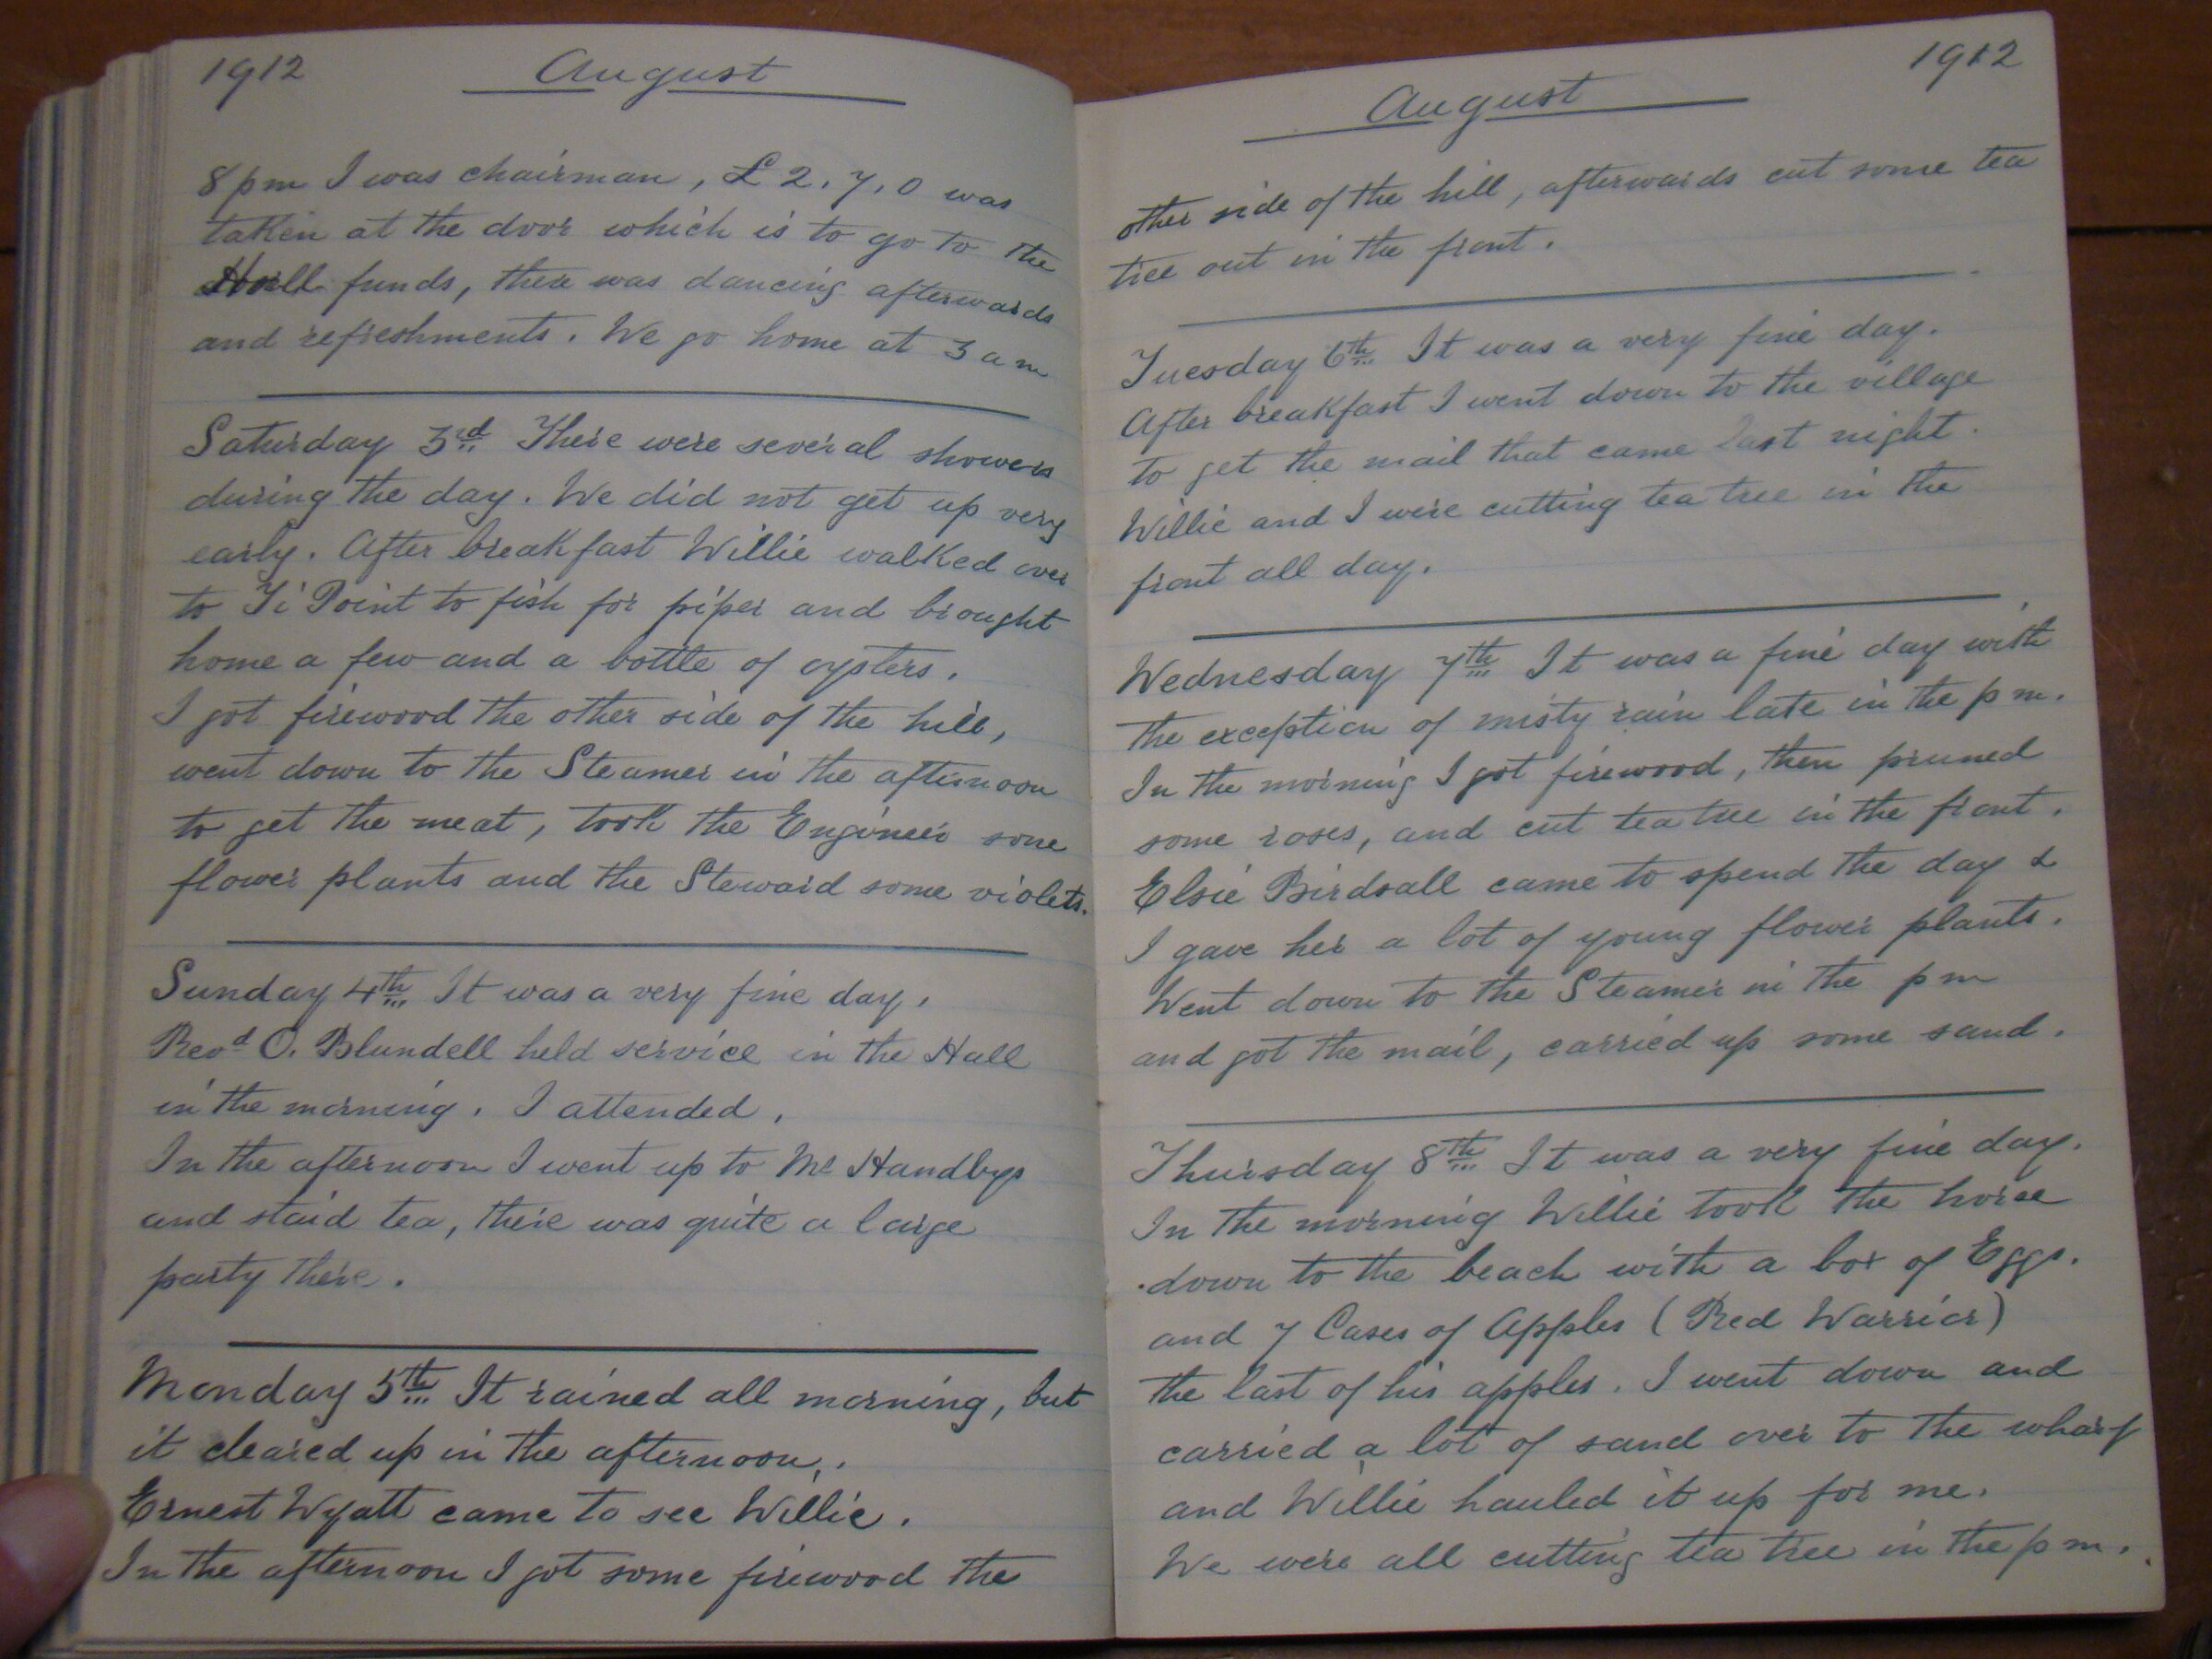 1912 August
8 pm I was chairman, £2.7.0 was
taken at the door which is to go to the
Hall funds, there was dancing afterwards
and refreshments. We go home at 3 am
Saturday 3rd There were several showers
during the day. We did not get up very
early. After breakfast Willie walked over
to Ti Point to fish for piper and brought
home a few and a bottle of oysters.
I got firewood the other side of the hill,
went down to the Steamer in the afternoon
to get the meat, took the Engineer some
flower plants and the Steward some violets.
Sunday 4th It was a very fine day.
Revd O. Blundell held service in the Hall
in the morning. I attended.
In the afternoon I went up to Mr Handbys
and staid tea, there was quite a large
party there.
Monday 5th It rained all morning, but
it cleared up in the afternoon.
Ernest Wyatt came to see Willie.
In the afternoon I got some firewood the
August 1912
other side of the hill, afterwards cut some tea
tree out in the front.
Tuesday 6th It was a very fine day.
After breakfast I went down to the village
to get the mail that came last night.
Willie and I were cutting tea tree in the
front all day.
Wednesday 7th It was a fine day with
the exception of misty rain late in the pm.
In the morning I got firewood, then pruned
some roses, and cut tea tree in the front.
Elsie Birdsall came to spend the day &
I gave her a lot of young flower plants.
Went down to the Steamer in the pm
and got the mail, carried up some sand.
Thursday 8th It was a very fine day.
In the morning Willie took the horse
down to the beach with a box of Eggs.
and 7 Cases of Apples (Red Warrior)
the last of his apples. I went down and
carried a lot of sand over to the wharf
and Willie hauled it up for me.
We were all cutting tea tree in the pm.